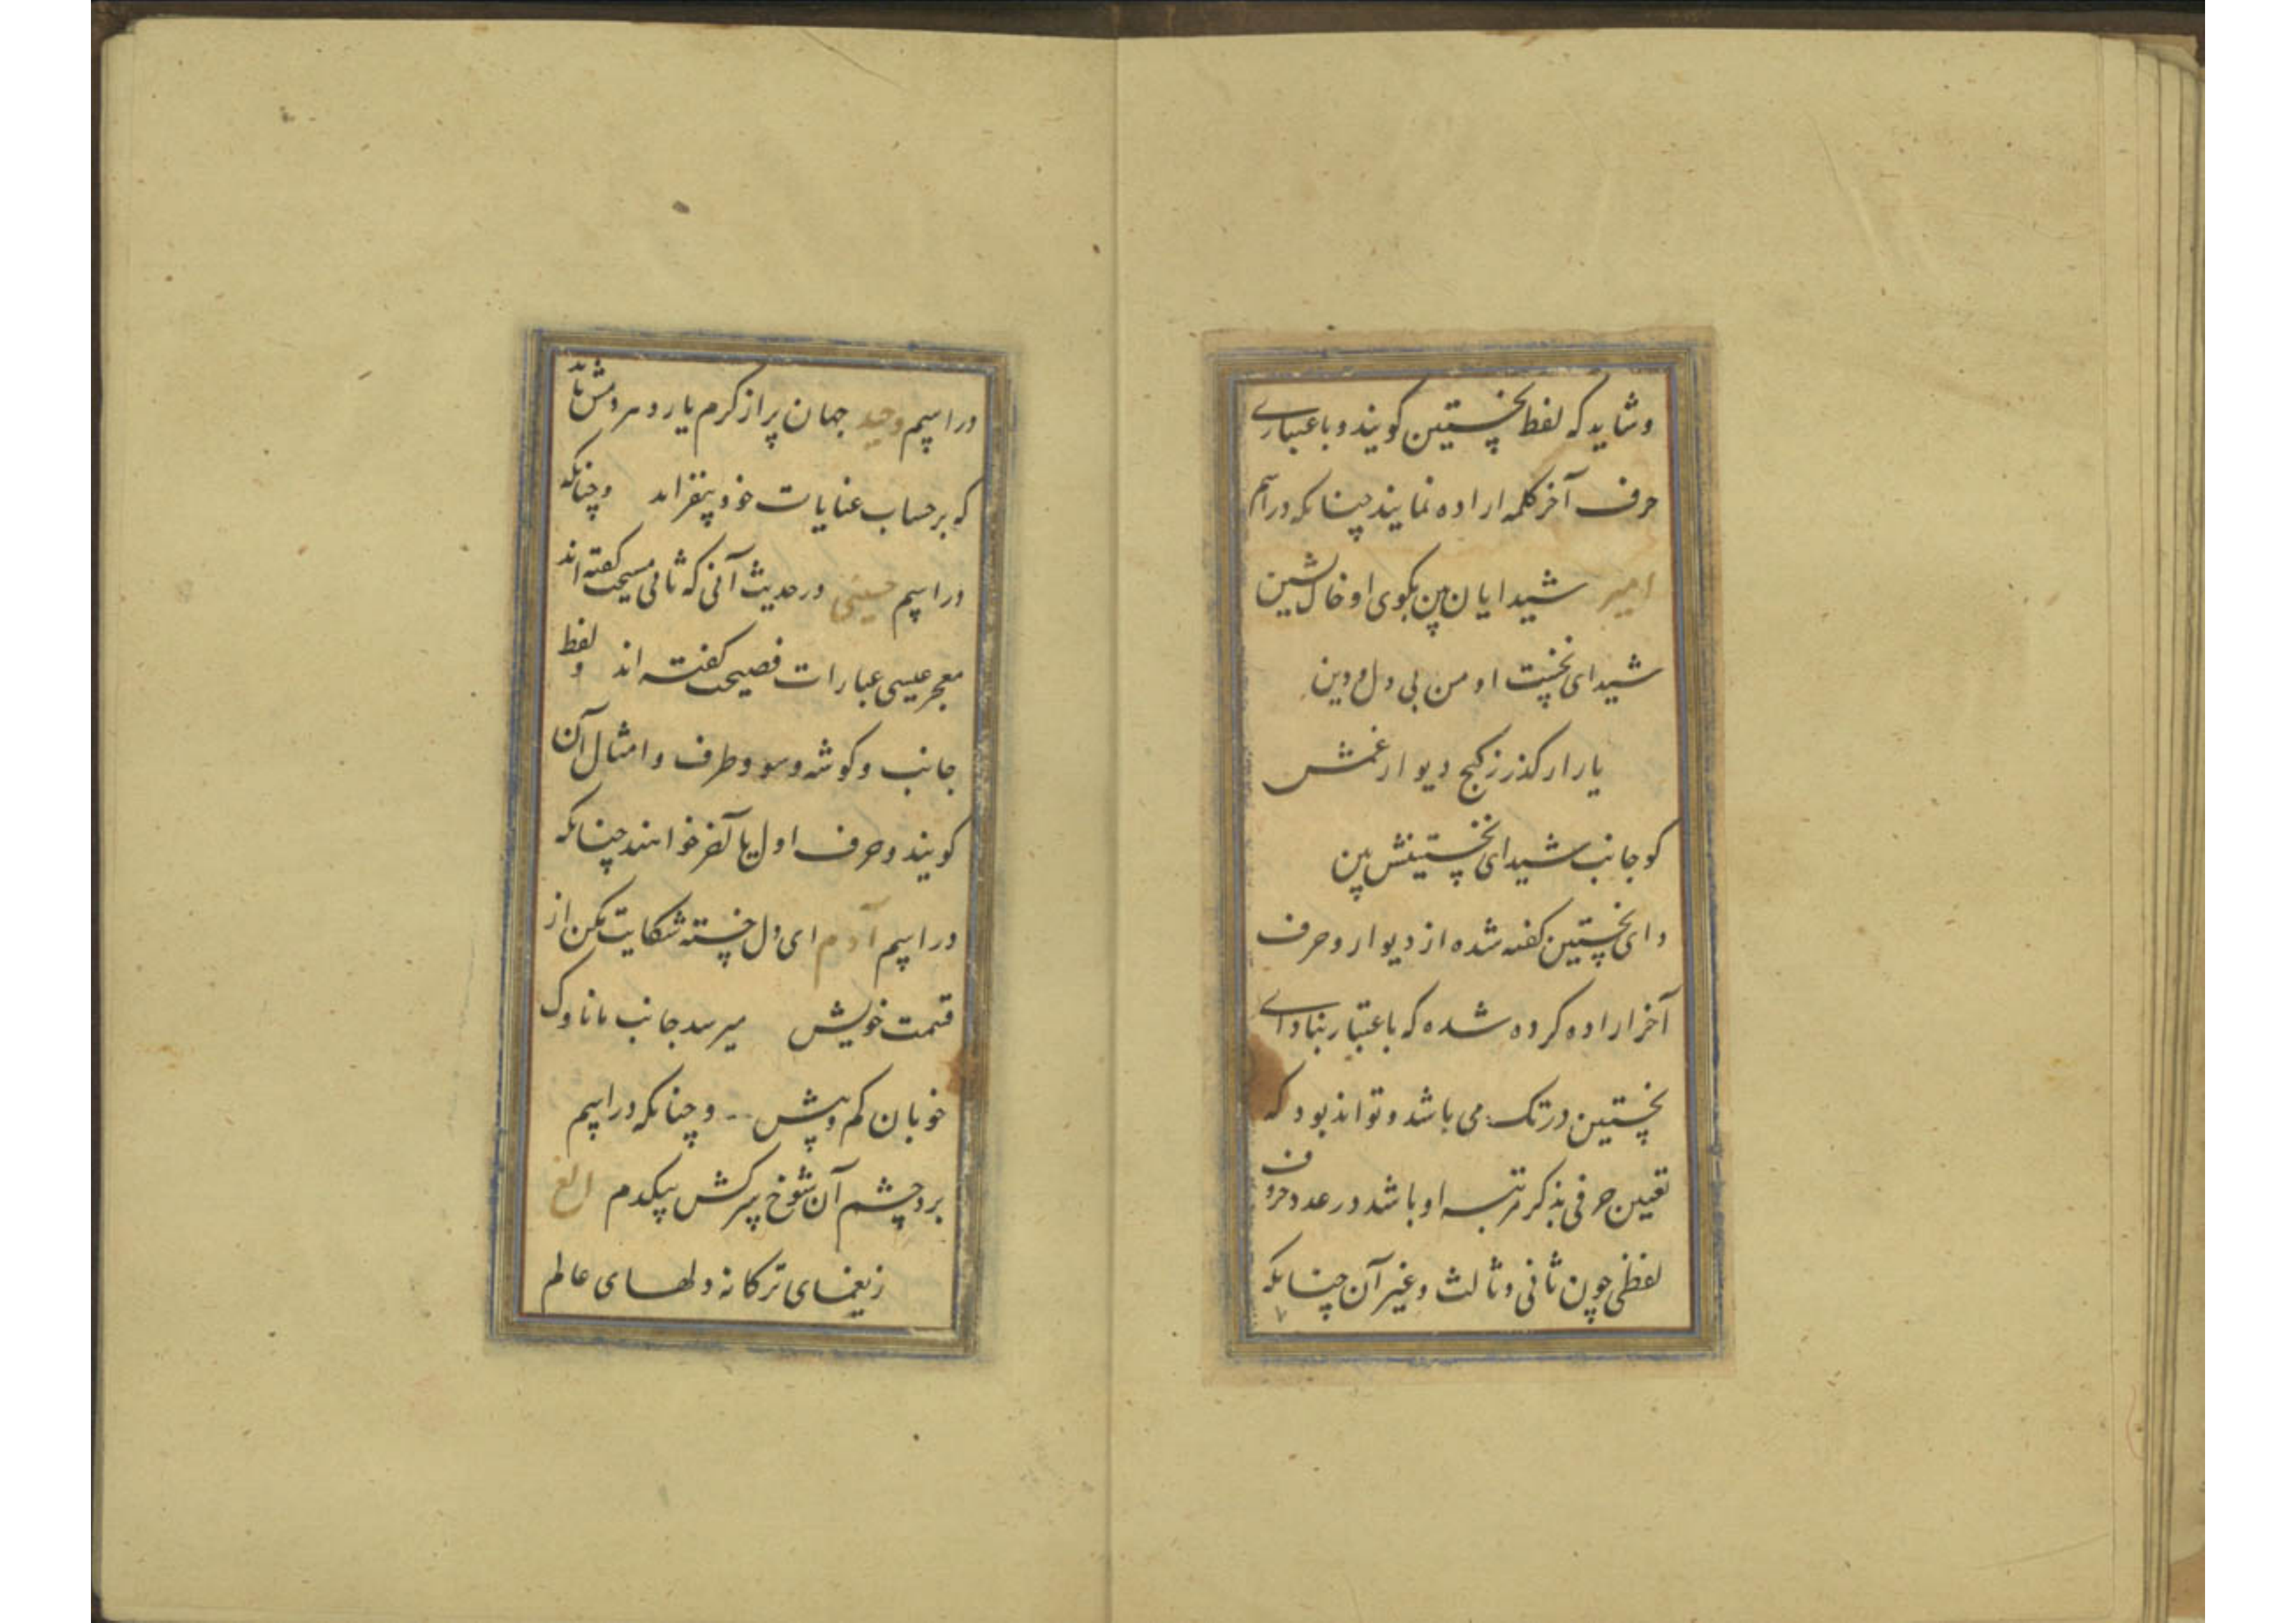 وشاید که لفظ نخستین گویند و باعتباری
حرف آخر کلمه اراده نمایند چنانکه در اسم
امیر شیدایان بین بکوی او خاک نشین
شیدای نخست او من بی دل و دین
یار ار گذرد ز کنج دیوار غمش
کو جانب شیدای نخستینش بین
و ای نخستین گفته شده از دیوار و حرف
آخر اراده کرده شده که باعتبار بنادای
نخستین در تک می باشد و تواند بود که
تعیین حرفی بذکر مرتبه او باشد در عدد حروف
لفظی چون ثانی و ثالث و غیر آن چنانکه
در اسم وحید جهان پر از کرم یار و مردمش باید
که بر حساب عنایات خود بیفزاید وچنانکه
در اسم حسینی در حدیث آنی که ثانی مسیحت گفته اند
معجز عیسی عبارات فصیحت گفته اند ولفظ
جانب و کوشه و سو و طرف و امثال آن
گویند و حرف اول یا آخر خواهند چنانکه
در اسم آدم ای دل خسته شکایت مکن از
قسمت خویش میرسد جانب ما ناوک
خوبان کم و بیش وچنانکه در اسم
الغ برد چشم آن شوخ سرکش بیکدم
ز یغمای ترکانه دلهای عالم